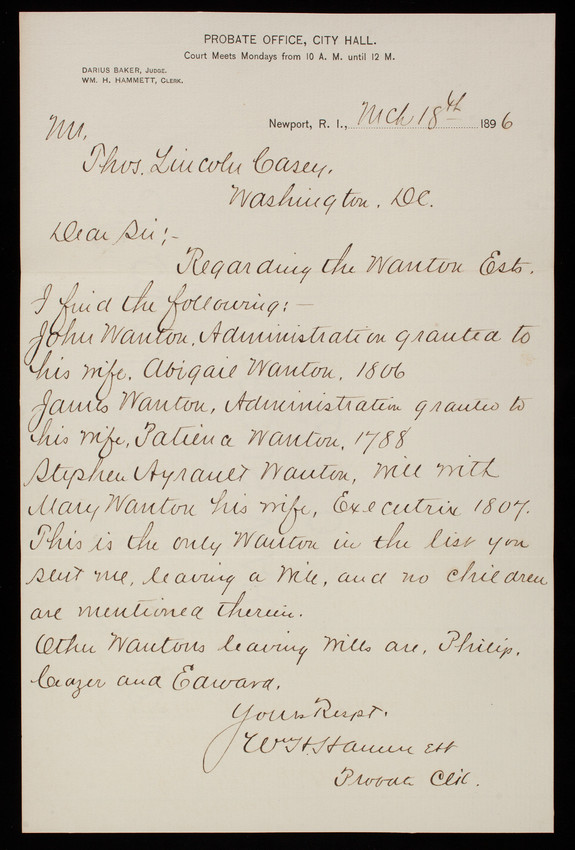 PROBATE OFFICE, CITY HALL.
Court Meets Mondays from 10 A. M. until 12 M.
DARIUS BAKER, JUDGE.
WM. H. HAMMETT, CLERK.
Newport, R. I., Mch 18th 1896
Mr,
Thos. Lincoln Casey,
Washington, DC.
Dear Sir;-
Regarding the Wanton Ests.
I find the following:—
John Wanton, Administration granted to
his wife, Abigail Wanton, 1806
James Wanton, Administration granted to
his wife, Patience Wanton, 1788
Stephen Ayrault Wanton, Will with
Mary Wanton his wife, Executrix 1807.
This is the only Wanton in the list you
sent me, leaving a Will, and no children
are mentioned therein.
Other Wantons leaving Wills are, Philip,
Ceazer and Edward.
Yours Respt.
Wm H. Hammett
Probate Clk.